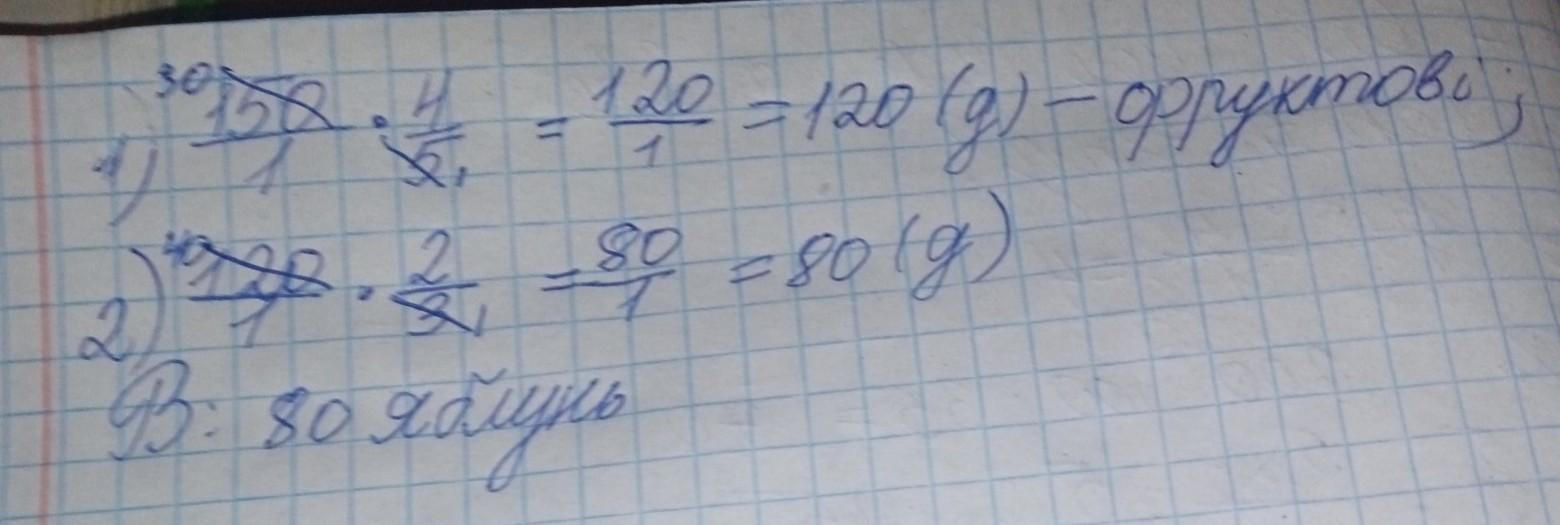 1) 30 150/1 · 4/5 1 = 120/1 = 120 (д) – фруктові;
2) 40 120/1 · 2/3 1 = 80/1 = 80 (д)
В: 80 яблунь